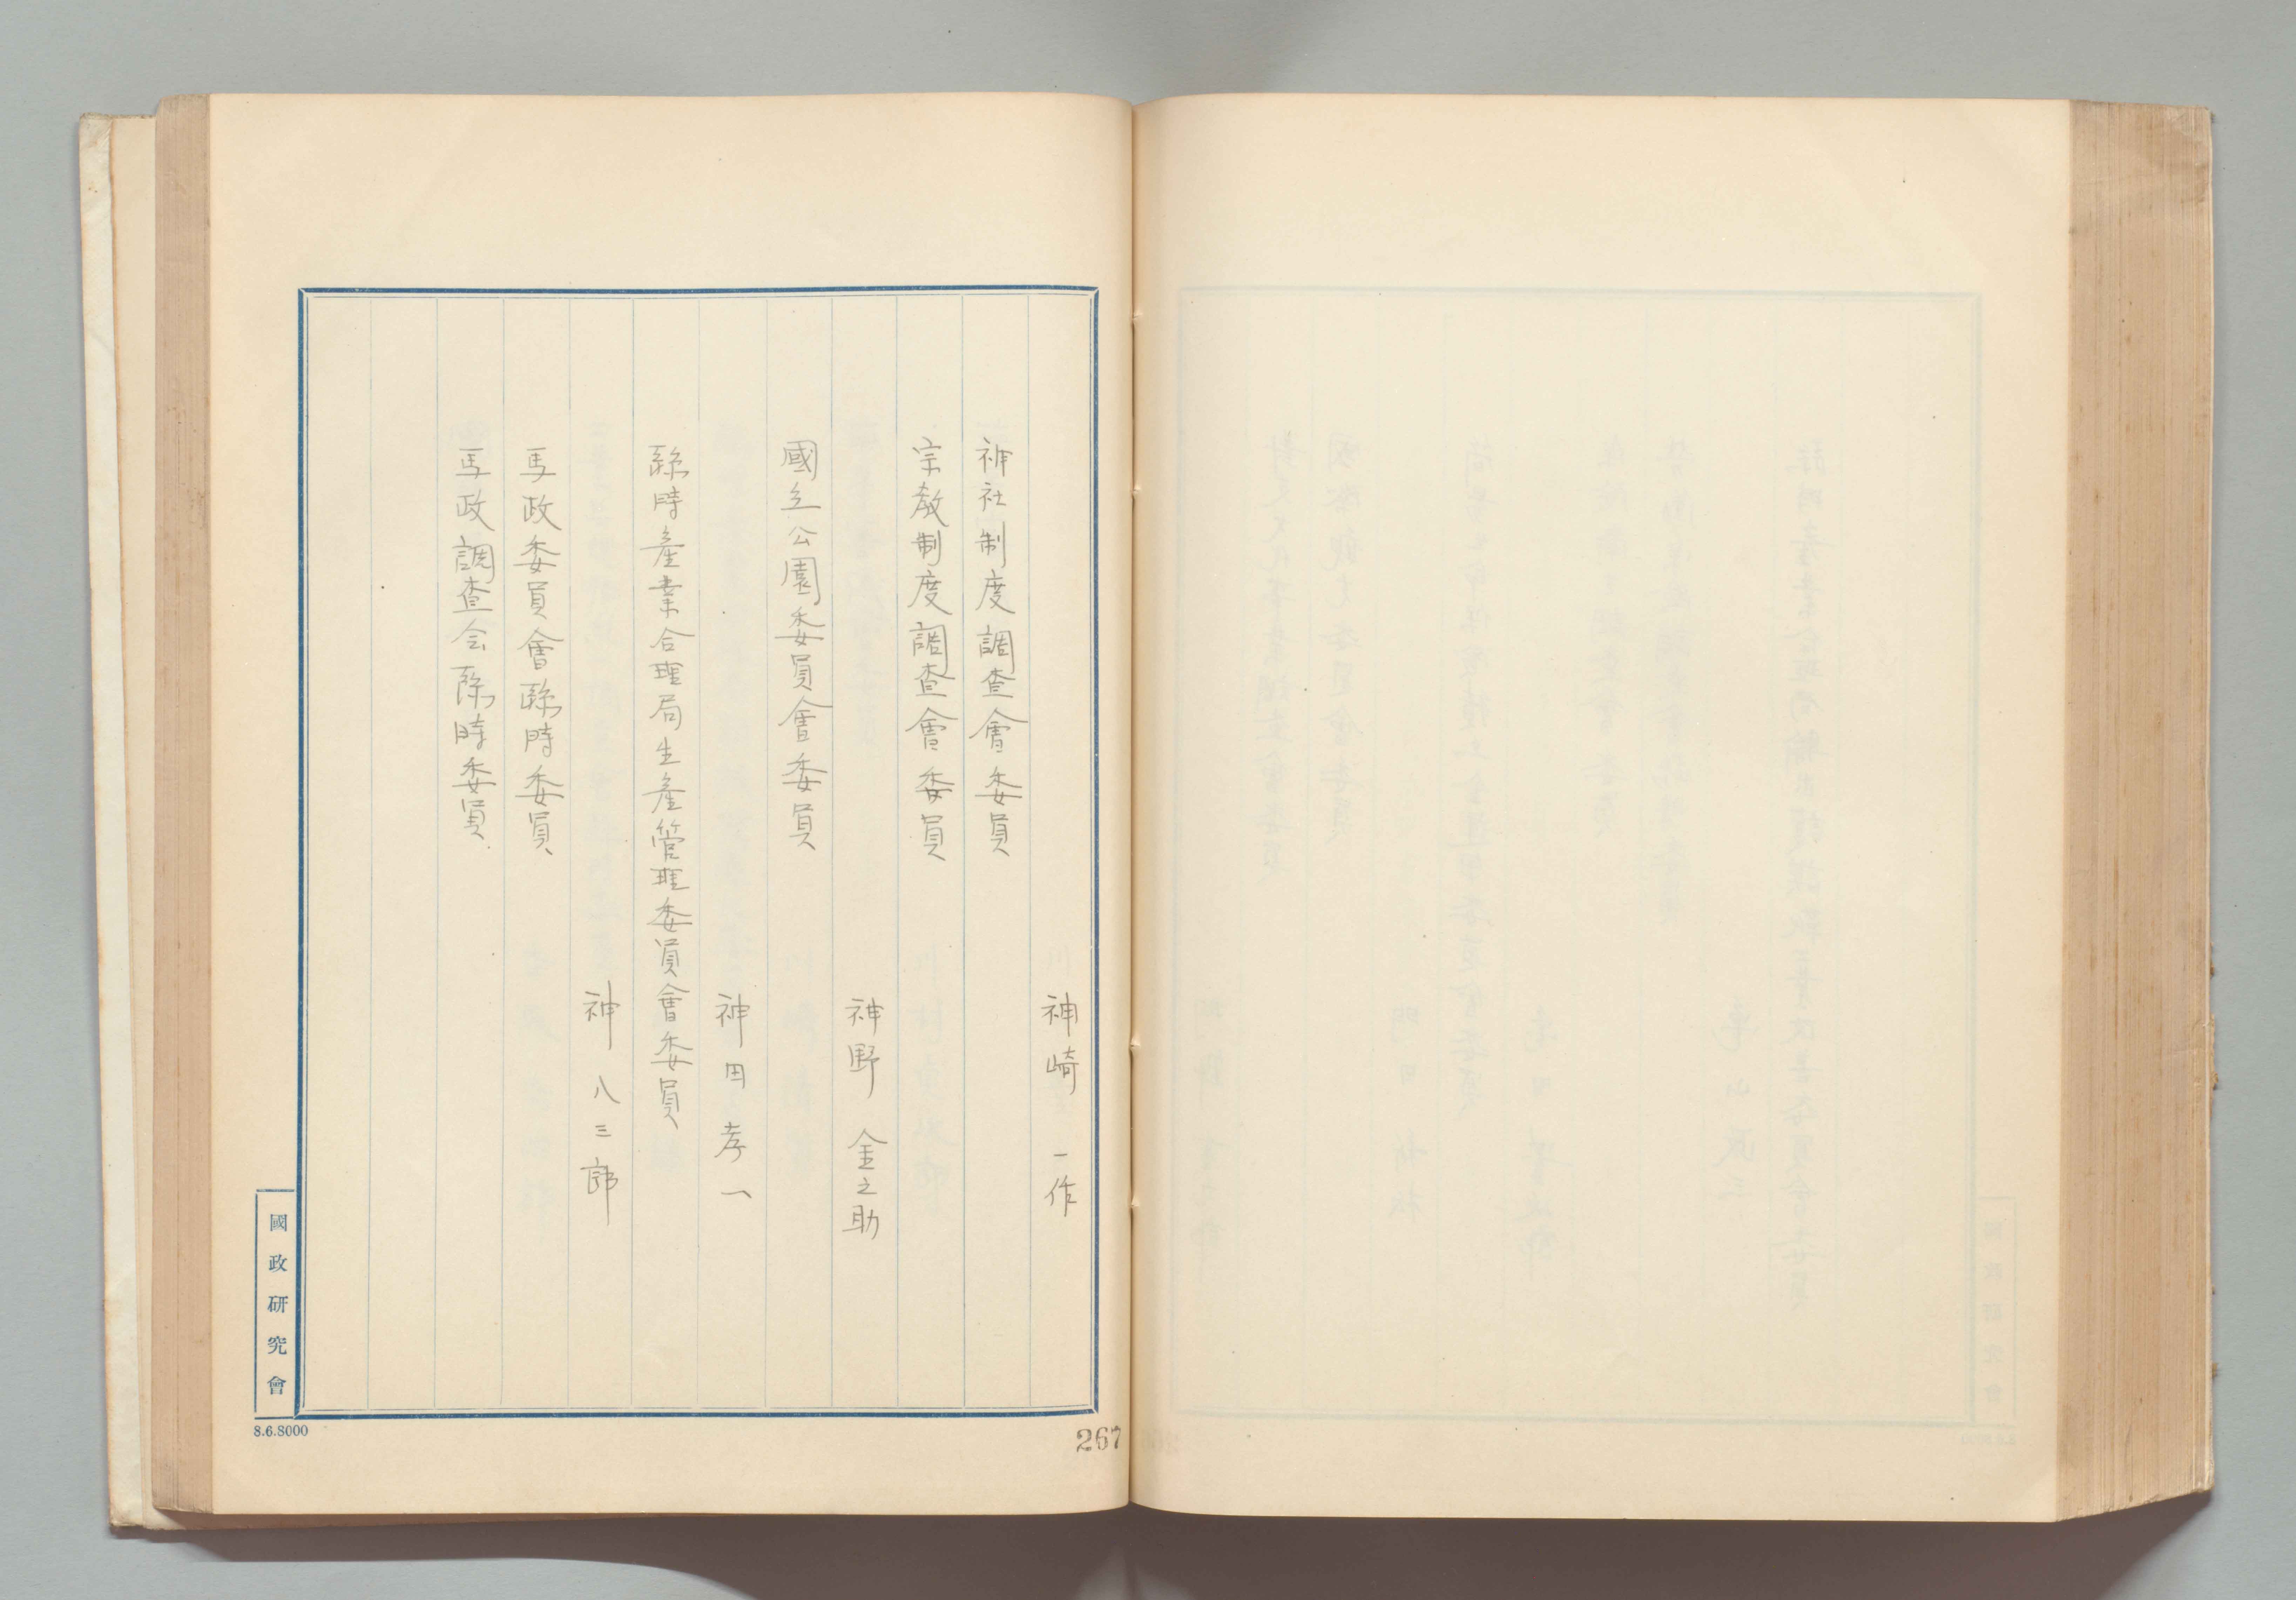 神崎 一作
神社制度調査會委員
宗教制度調査會委員
神野 金之助
國立公園委員會委員
神田 孝一
臨時産業合理局生産管理委員會委員
神 八三郎
馬政委員會臨時委員
馬政調査会臨時委員
國政研究會
8.6.8000
267